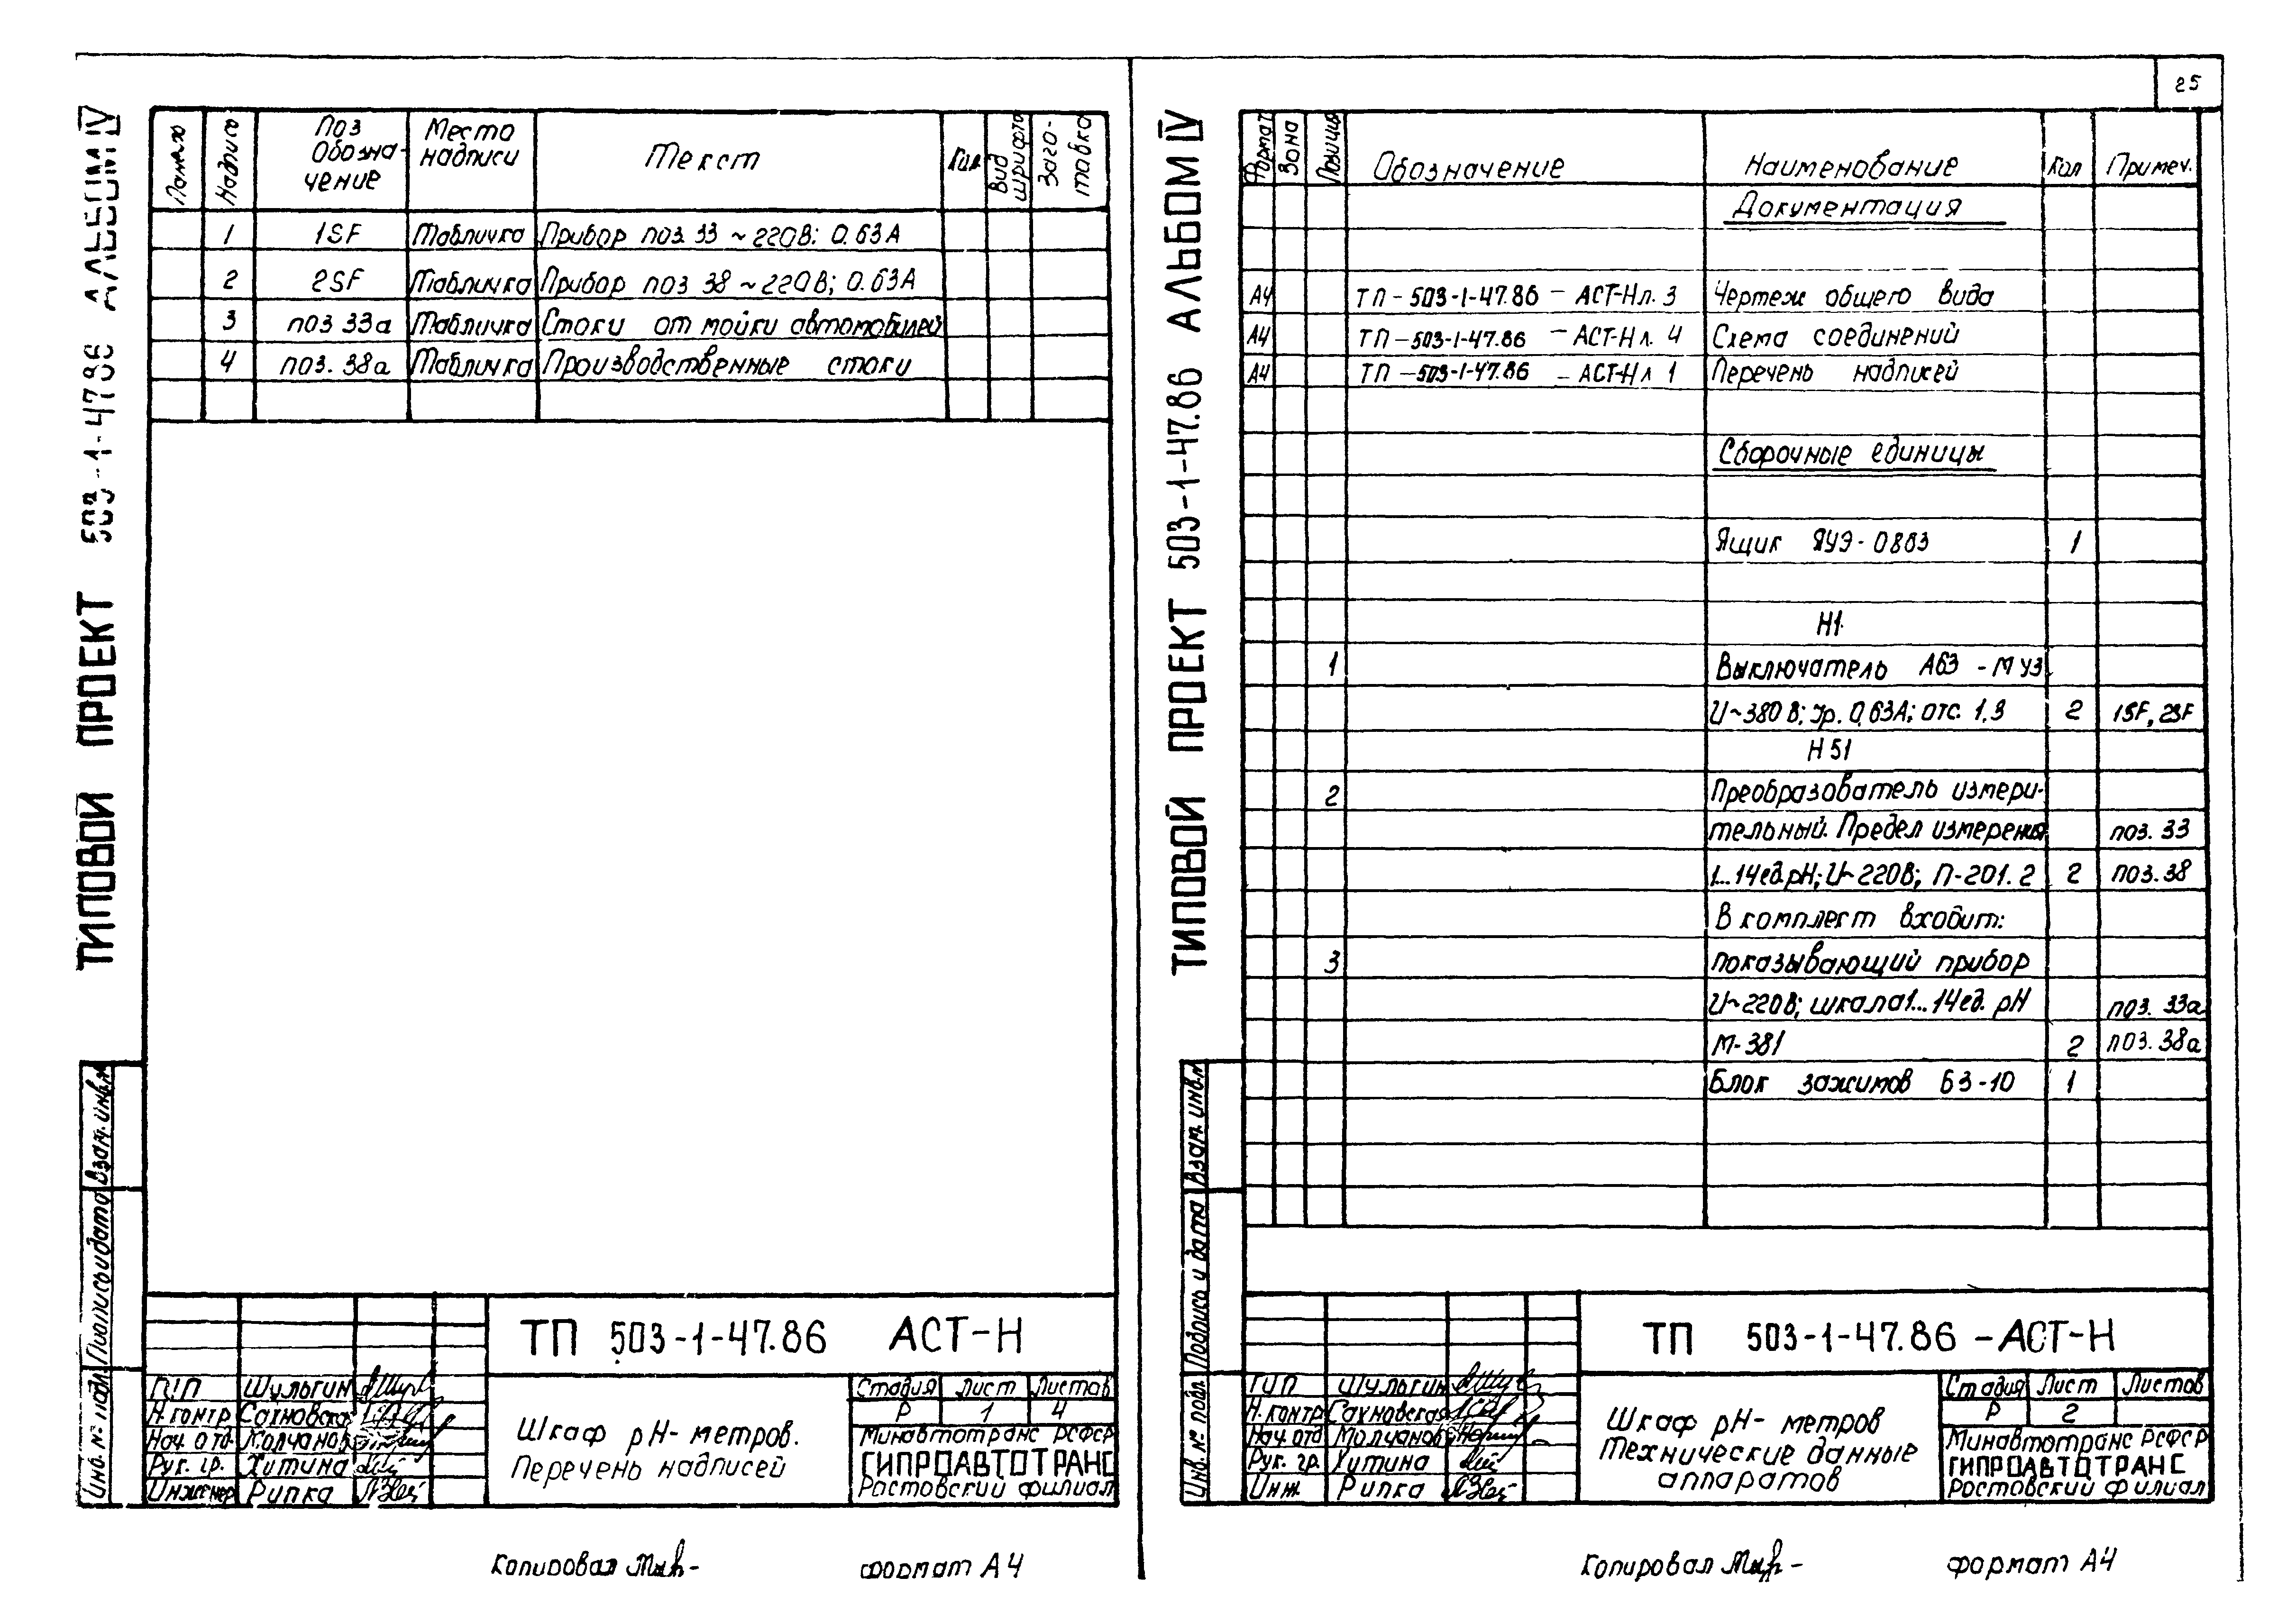 25
ТИПОВОЙ ПРОЕКТ 503-1-47.86 АЛЬБОМ IV
Панель Надпись Поз Обозна- чение Место надписи Текст Кол Вид шрифта Заго- товка
1 1SF Табличка Прибор поз. 33 ~ 220В; 0.63А
2 2SF Табличка Прибор поз 38 ~ 220В; 0.63А
3 поз 33а Табличка Стоки от мойки автомобилей
4 поз. 38а Табличка Производственные стоки
Взам. инв.№
Подпись и дата
Инв. № подл.
ТП 503-1-47.86 АСТ-Н
ГИП Шульгин
Н.контр Сахновская
Нач. отд Молчанов
Рук. гр. Хитина
Инженер Рипка
Шкаф рН-метров.
Перечень надписей
Стадия Лист Листов
Р 1 4
Минавтотранс РСФСР
ГИПРОАВТОТРАНС
Ростовский филиал
Копировал
формат А4
ТИПОВОЙ ПРОЕКТ 503-1-47.86 АЛЬБОМ IV
Формат Зона Позиция Обозначение Наименование Кол Примеч.
Документация
А4 ТП-503-1-47.86 - АСТ-Н л. 3 Чертеж общего вида
А4 ТП-503-1-47.86 - АСТ-Н л. 4 Схема соединений
А4 ТП-503-1-47.86 - АСТ-Н л 1 Перечень надписей
Сборочные единицы
Ящик ЯУЭ-0883 1
Н1.
1 Выключатель А63 - М У3
U~380 В; Iр. 0,63А; отс. 1,3 2 1SF, 2SF
Н 51
2 Преобразователь измери-
тельный. Предел измерения поз. 33
1...14ед.рН; U~220В; П-201.2 2 поз. 38
В комплект входит:
3 показывающий прибор
U~220В; шкала 1...14ед. рН поз. 33а
М-381 2 поз. 38а
Блок зажимов БЗ-10 1
Взам. инв.№
Подпись и дата
Инв. № подл.
ТП 503-1-47.86 -АСТ-Н
ГИП Шульгин
Н.контр Сахновская
Нач. отд Молчанов
Рук. гр. Хитина
Инж. Рипка
Шкаф рН-метров
Технические данные
аппаратов
Стадия Лист Листов
Р 2
Минавтотранс РСФСР
ГИПРОАВТОТРАНС
Ростовский филиал
Копировал
формат А4